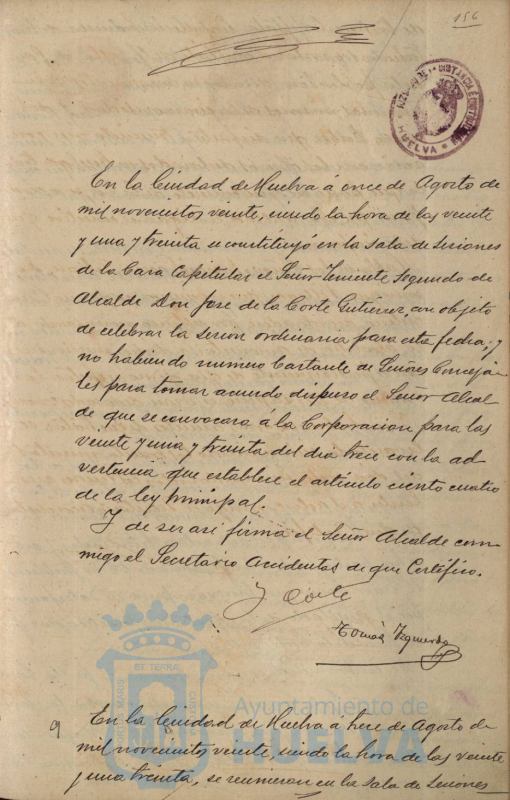 156
HUELVA
En la Ciudad de Huelva á once de Agosto de
mil novecientos veinte, siendo la hora de las veinte
y una y treinta se constituyó en la sala de sesiones
de la Casa Capitular el Señor Teniente segundo de
Alcalde Don José de la Corte Gutiérrez, con objeto
de celebrar la sesion ordinaria para esta fecha; y
no habiendo numero bastante de Señores Conceja-
les para tomar acuerdo dispuso el Señor Alcal-
de que se convocara á la Corporacion para las
veinte y una y treinta del dia trece con la ad-
vertencia que establece el artículo ciento cuatro
de la ley Municipal.
Y de ser asi firma el Señor Alcalde con-
migo el Secretario Accidental de que Certifico.
J Corte
Tomás Izquierdo
ET TERRA
Ayuntamiento de
HUELVA
9 En la Ciudad de Huelva á trece de Agosto de
mil novecientos veinte, siendo la hora de las veinte
y una treinta, se reunieron en la sala de sesiones